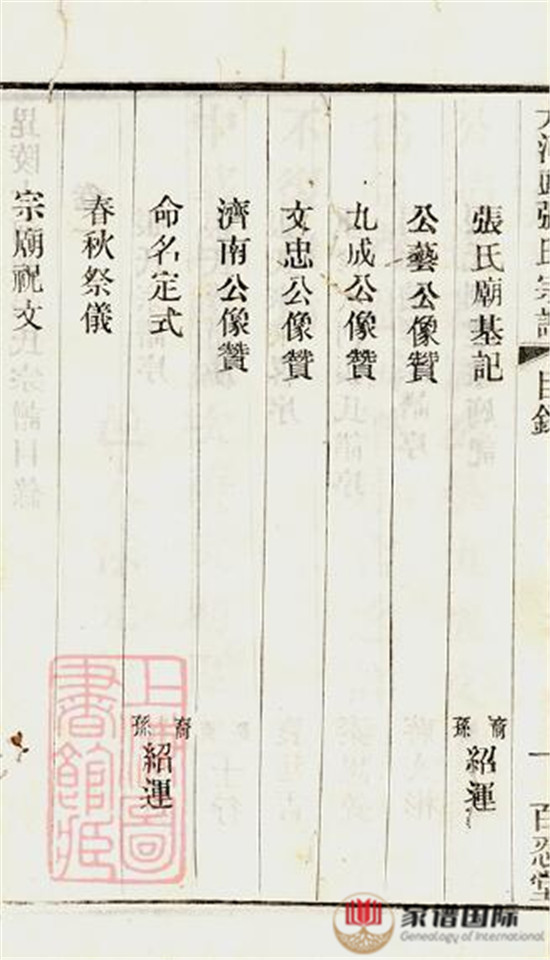 張氏宗譜 目錄 一 百忍堂
張氏廟基記 裔孫紹運
公藝公像贊
九成公像贊
文忠公像贊
濟南公像贊
命名定式 裔孫紹運
春秋祭儀
宗廟祝文
上海圖
書館藏
家谱国际
Genealogy of International